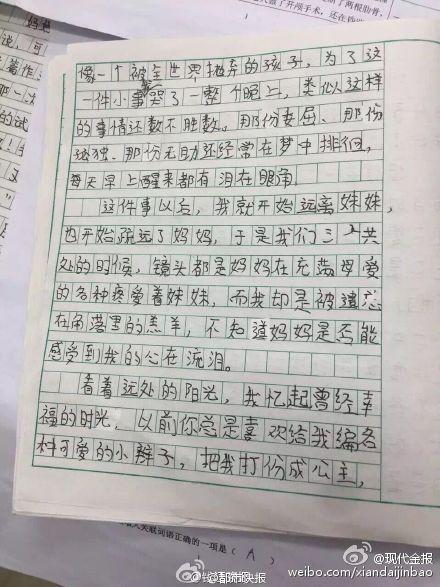 了开颅手术，还在昏
了两根肋骨，
妈也
说，可
著作：
那一次
像一个被全世界抛弃的孩子，为了这
一件小事哭了一整个晚上，类似这样
的事情还数不胜数。那份委屈、那份
孤独、那份无助还经常在梦中徘徊，
每天早上醒来都有泪在眼角。
这件事以后，我就开始远离妹妹，
也开始疏远了妈妈，于是我们三个共
处的时候，镜头都是妈妈在充满母爱
的各种疼爱着妹妹，而我却是被遗忘
在角落里的羔羊，不知道妈妈是否能
感受到我的心在流泪。
看着远处的阳光，我忆起曾经幸
福的时光，以前你总是喜欢给我编各
种可爱的小辫子，把我打份成公主，
关联词语正确的一项是（ A ）
@都市快报
@现代金报
weibo.com/xiandaijinbao